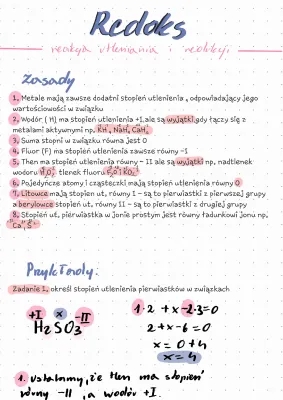 Redoks
reakcja utleniania i redukcji
Zasady
1. Metale mają zawsze dodatni stopień utlenienia, odpowiadający jego
wartościowości w związku
2. Wodór (H) ma stopień utlenienia +I, ale są wyjątki gdy łączy się z
metalami aktywnymi np. KH, NaH, CaH₂
3. Suma stopni w związku równa jest 0
4. Fluor (F) ma stopień utlenienia zawsze równy -I
5. Tlen ma stopień utlenienia równy - II ale są wyjątki np. nadtlenek
wodoru H₂O₂ tlenek fluoru F₂O i KO₂
6. Pojedyncze atomy i cząsteczki mają stopień utlenienia równy 0
7. Litowce mają stopień ut, równy I - są to pierwiastki z pierwszej grupy
a berylowce stopień ut, równy II - są to pierwiastki z drugiej grupy
8. Stopień ut, pierwiastka w jonie prostym jest równy ładunkowi jonu np.
Ca, S
Przykłady:
Zadanie 1, określ stopień utlenienia pierwiastków w związkach
+I x -II
H₂SO₃
1·2 + x -2·3=0
2+x-6=0
x = 0+4
x = 4
1. Ustalamy, że tlen ma stopień
równy -II, a wodór +I.